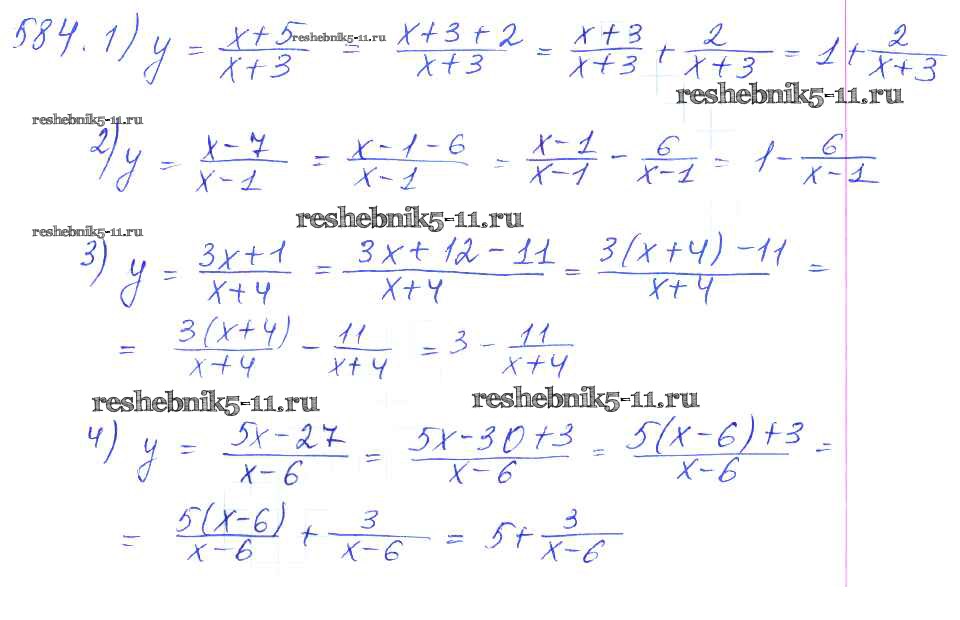 584. 1) y = (x+5)/(x+3) = (x+3+2)/(x+3) = (x+3)/(x+3) + 2/(x+3) = 1 + 2/(x+3)
reshebnik5-11.ru
reshebnik5-11.ru
reshebnik5-11.ru
2) y = (x-7)/(x-1) = (x-1-6)/(x-1) = (x-1)/(x-1) - 6/(x-1) = 1 - 6/(x-1)
reshebnik5-11.ru
reshebnik5-11.ru
3) y = (3x+1)/(x+4) = (3x+12-11)/(x+4) = (3(x+4)-11)/(x+4) =
= 3(x+4)/(x+4) - 11/(x+4) = 3 - 11/(x+4)
reshebnik5-11.ru reshebnik5-11.ru
4) y = (5x-27)/(x-6) = (5x-30+3)/(x-6) = (5(x-6)+3)/(x-6) =
= 5(x-6)/(x-6) + 3/(x-6) = 5 + 3/(x-6)